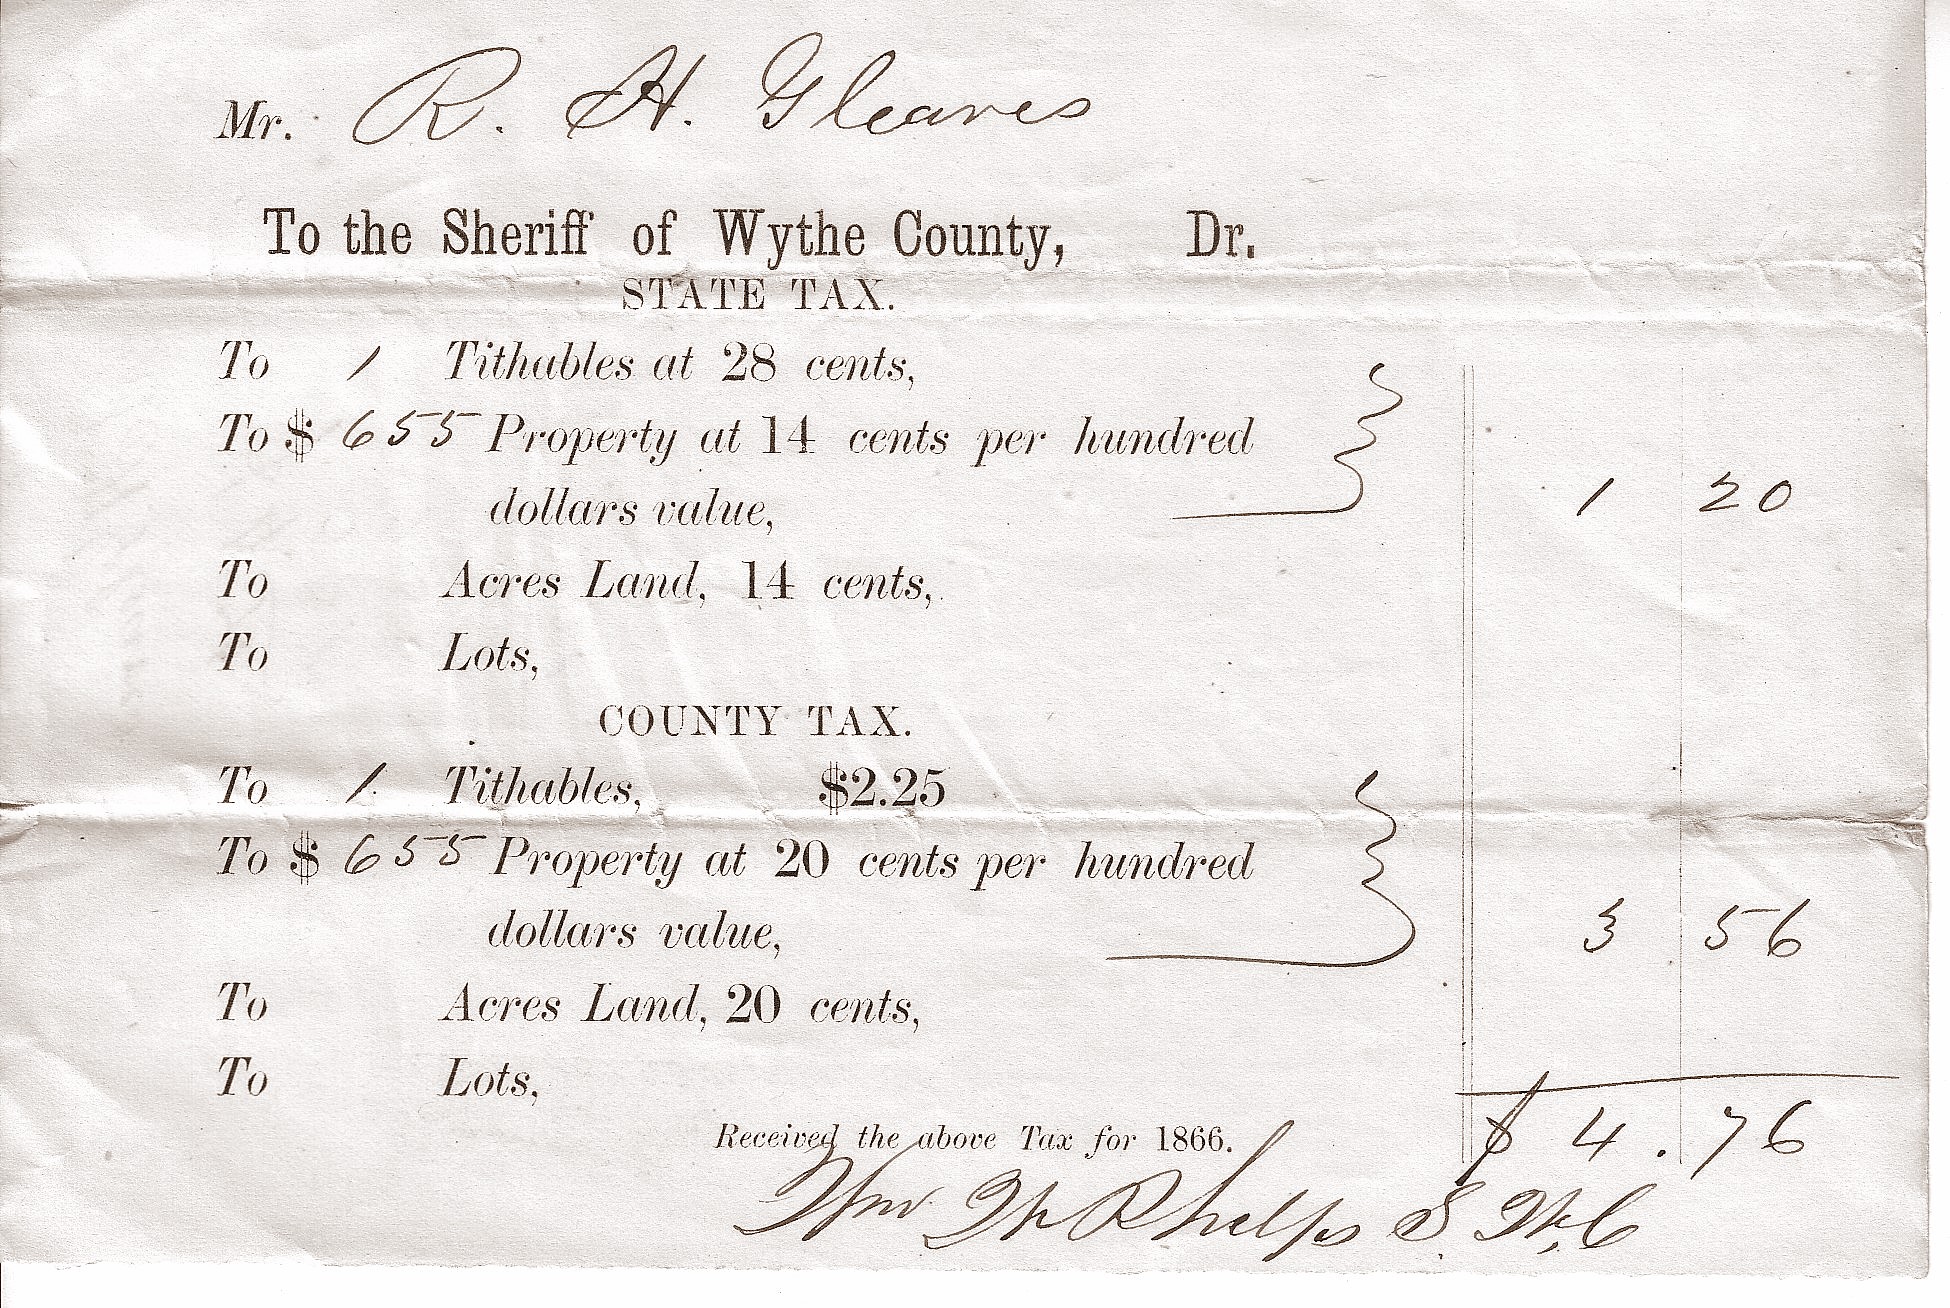 Mr. R. H. Gleaves
To the Sheriff of Wythe County, Dr.
STATE TAX.
To 1 Tithables at 28 cents,
To $ 655 Property at 14 cents per hundred
dollars value, 1 20
To Acres Land, 14 cents,
To Lots,
COUNTY TAX.
To 1 Tithables, $2.25
To $ 655 Property at 20 cents per hundred
dollars value, 3 56
To Acres Land, 20 cents,
To Lots,
Received the above Tax for 1866. $ 4.76
Wm W Phelps S. W. C